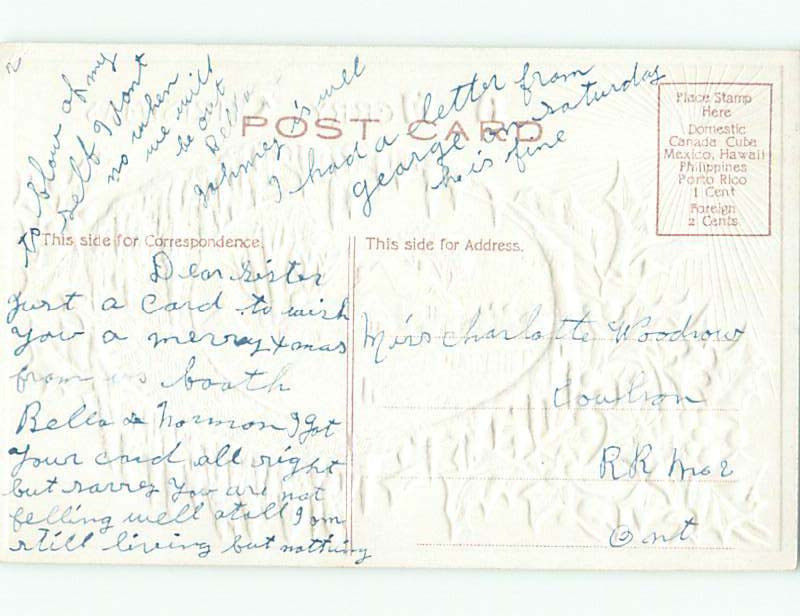 to blow of my
self I dont
no when
we will
be out
Bella
Johnney is well
I had a letter from
george on saturday
he is fine
POST CARD
Place Stamp
Here
Domestic
Canada Cuba
Mexico, Hawaii
Philippines
Porto Rico
1 Cent
Foreign
2 Cents
This side for Correspondence.
Dear sister
Just a card to wish
you a merrey xmas
from us booth
Bella & Norman I got
your card all right
but sorrey you are not
felling well atall I am
still living but nothing
This side for Address.
Miss Charlotte Woodrow
Coulson
RR No 2
Ont